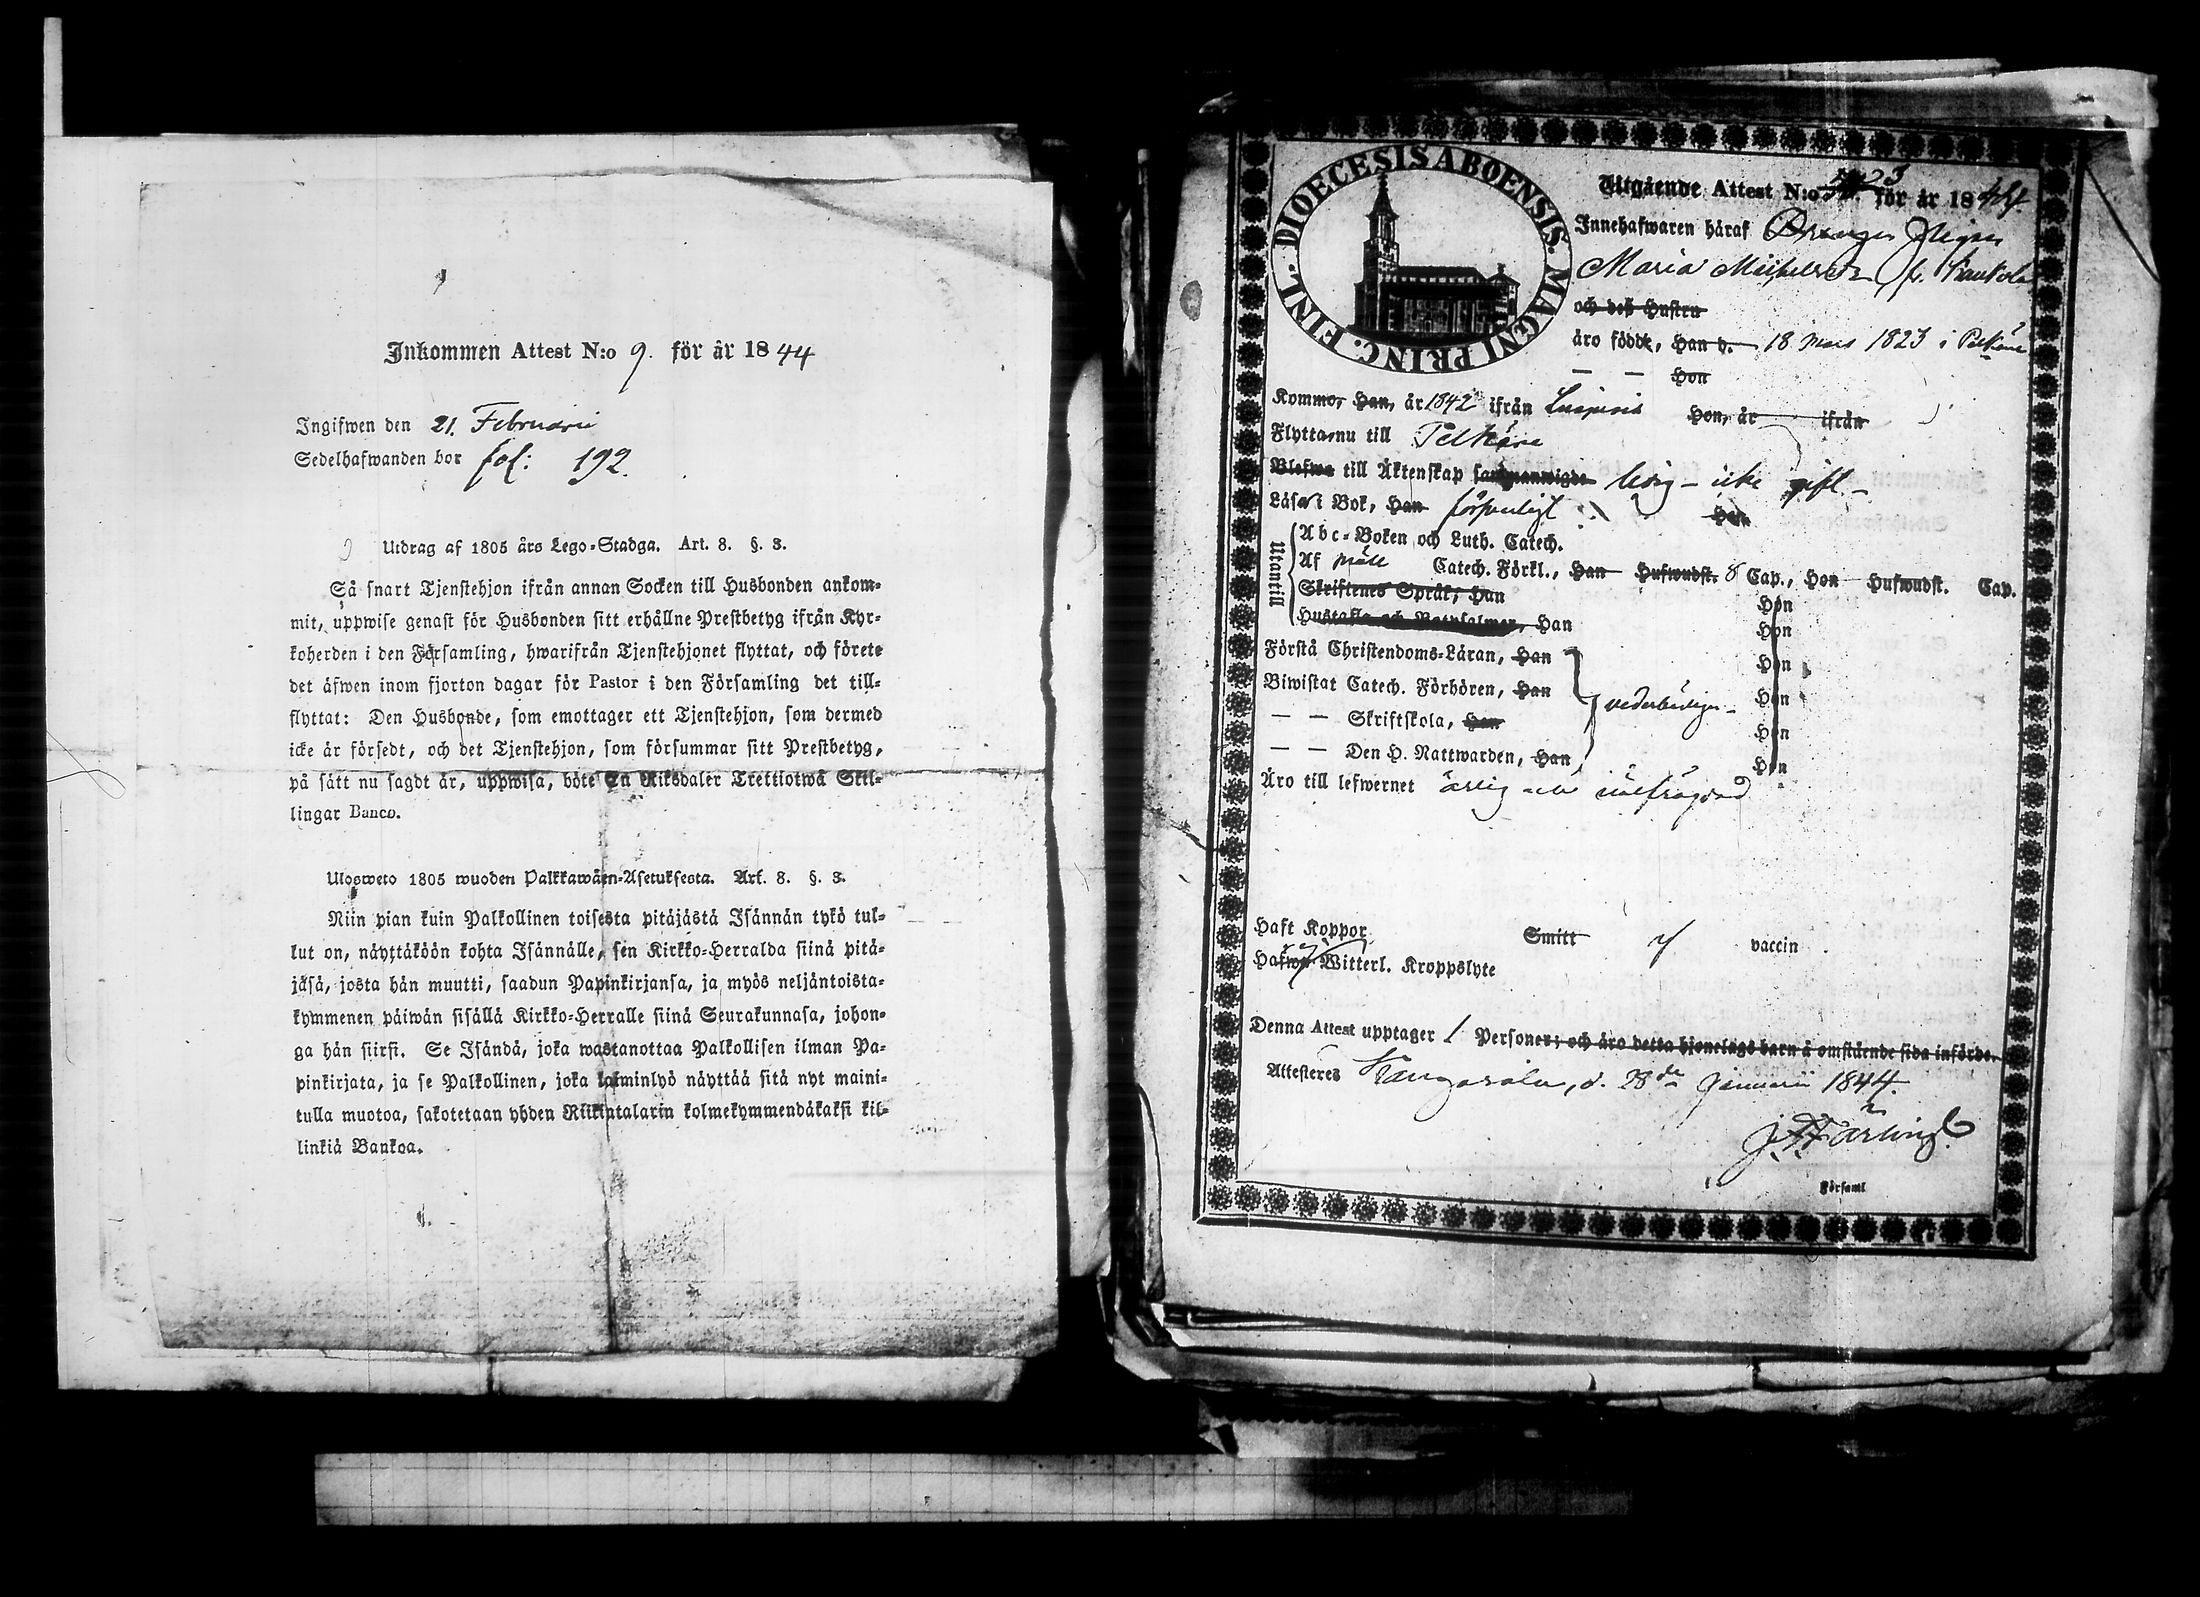 Inkommen Attest N:o 9. för år 1844
Ingifwen den 21. Februarii
Sedelhafwanden bor fol: 192.
Utdrag af 1805 års Lego-Stadga. Art. 8. §. 3.
Så snart Tjenstehjon ifrån annan Socken till Husbonden ankom-
mit, uppwise genast för Husbonden sitt erhållne Prestbetyg ifrån Kyr-
koherden i den Församling, hwarifrån Tjenstehjonet flyttat, och förete
det äfwen inom fjorton dagar för Pastor i den Församling det till-
flyttat: Den Husbonde, som emottager ett Tjenstehjon, som dermed
icke är försedt, och det Tjenstehjon, som försummar sitt Prestbetyg,
på sätt nu sagdt är, uppwisa, böte En Riksdaler Trettiotwå Skil-
lingar Banco.
Ulosweto 1805 wuoden Palkkawäen-Asetuksesta. Art. 8. §. 3.
Niin pian kuin Palkollinen toisesta pitäjästä Isännän tykö tul-
lut on, näyttäköön kohta Isännälle, sen Kirkko-Herralda siinä pitä-
jäsä, josta hän muutti, saadun Papinkirjansa, ja myös neljäntoista-
kymmenen päiwän sisällä Kirkko-Herralle siinä Seurakunnasa, johon-
ga hän siirsi. Se Isändä, joka wastanottaa Palkollisen ilman Pa-
pinkirjata, ja se Palkollinen, joka laiminlyö näyttää sitä nyt maini-
tulla muotoa, sakotetaan yhden Riikintalarin kolmekymmendäkaksi kil-
linkiä Bankoa.
DIOECESIS ABOENSIS. MAGNI PRINC. FINL.
Utgående Attest N:o 23 för år 1844.
Innehafwaren häraf Pigan
Maria Michelsdr fr. Kaukola
och deß Hustru
äro födde, Han d. 18 Mars 1823 i Pelkäne
— — Hon
Kommo, Han, år 1842 ifrån Hon, år ifrån
Flytta nu till Pelkäne
Blefwo till Äktenskap sammanwigde ledig - icke gift -
Läsa i Bok, Han försvarligt Hon
Utantill
Abc-Boken och Luth. Catech.
Af Catech. Förkl., Han Hufwudst. 8 Cap., Hon Hufwudst. Cap.
Skriftenes Språk, Han Hon
Hustafla och Botpsalmer, Han Hon
Förstå Christendoms-Läran, Han Hon
Biwistat Catech. Förhören, Han vederbörligen - Hon
— — Skriftskola, Han Hon
— — Den H. Nattwarden, Han Hon
Äro till lefwernet ärlig och välfrägdad
Haft Koppor Smitt vaccin
Hafwa Witterl. Kroppslyte
Denna Attest upptager 1 Personer; och äro detta hjonelags barn å omstående sida införde.
Attesteres Kangasala, d. 28de Januarii 1844.
Församl